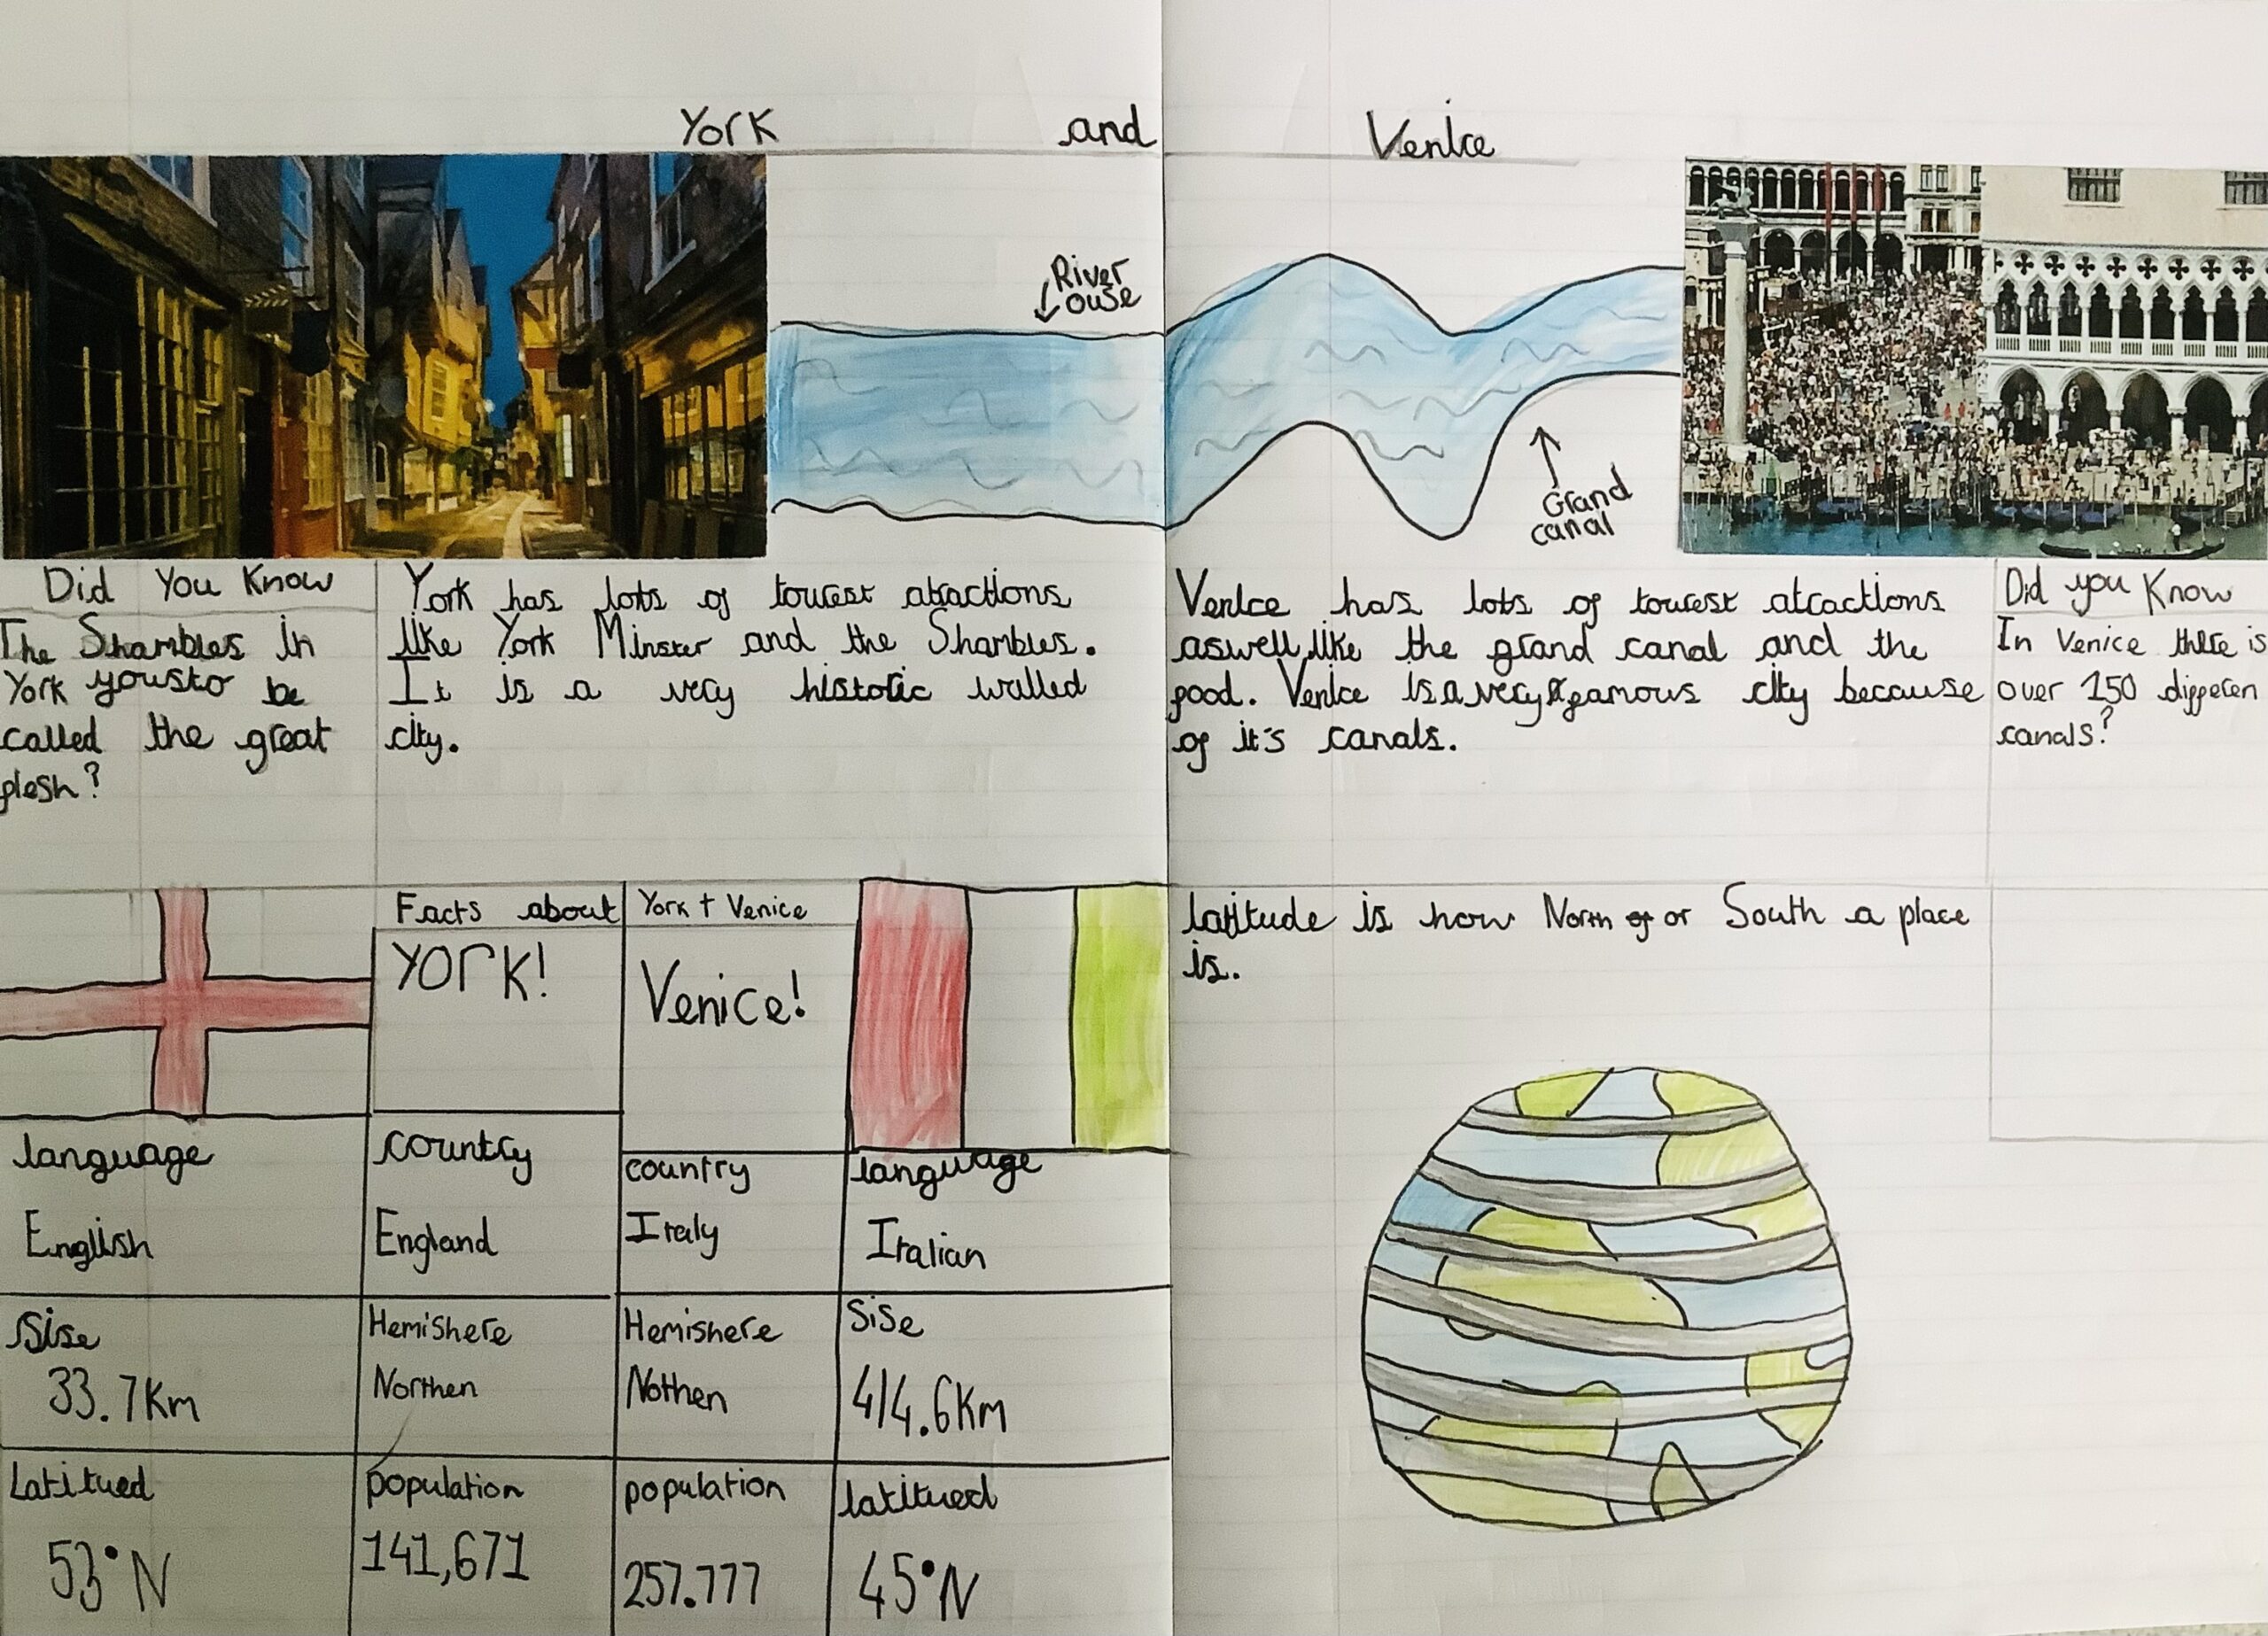 York and Venice
River
ouse
Grand
canal
Did You Know
The Shambles in
York yousto be
called the great
flesh?
York has lots of tourest atractions
like York Minster and the Shambles.
It is a very historic walled
city.
Venice has lots of tourest atractions
aswell, like the grand canal and the
food. Venice is a very famous city because
of it's canals.
Did you Know
In Venice there is
over 150 differen
canals?
Facts about York + Venice
YORK!
Venice!
language
English
country
England
country
Italy
language
Italian
Sise
33.7Km
Hemishere
Northen
Hemishere
Nothen
Sise
414.6Km
Latitued
53°N
population
141,671
population
257.777
latitued
45°N
latitude is how North or South a place
is.